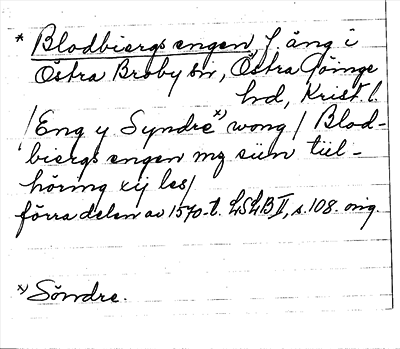 * Blodbiergs engen, f. äng i
Östra Broby sn, Östra Göinge
hd, Krist. l.
/Eng y Syndre x) wong/ Blod-
biergs engen mz siin tiil-
höring xij les/
förra delen av 1570-t. LSLB II, s. 108. orig.
x) Söndre.